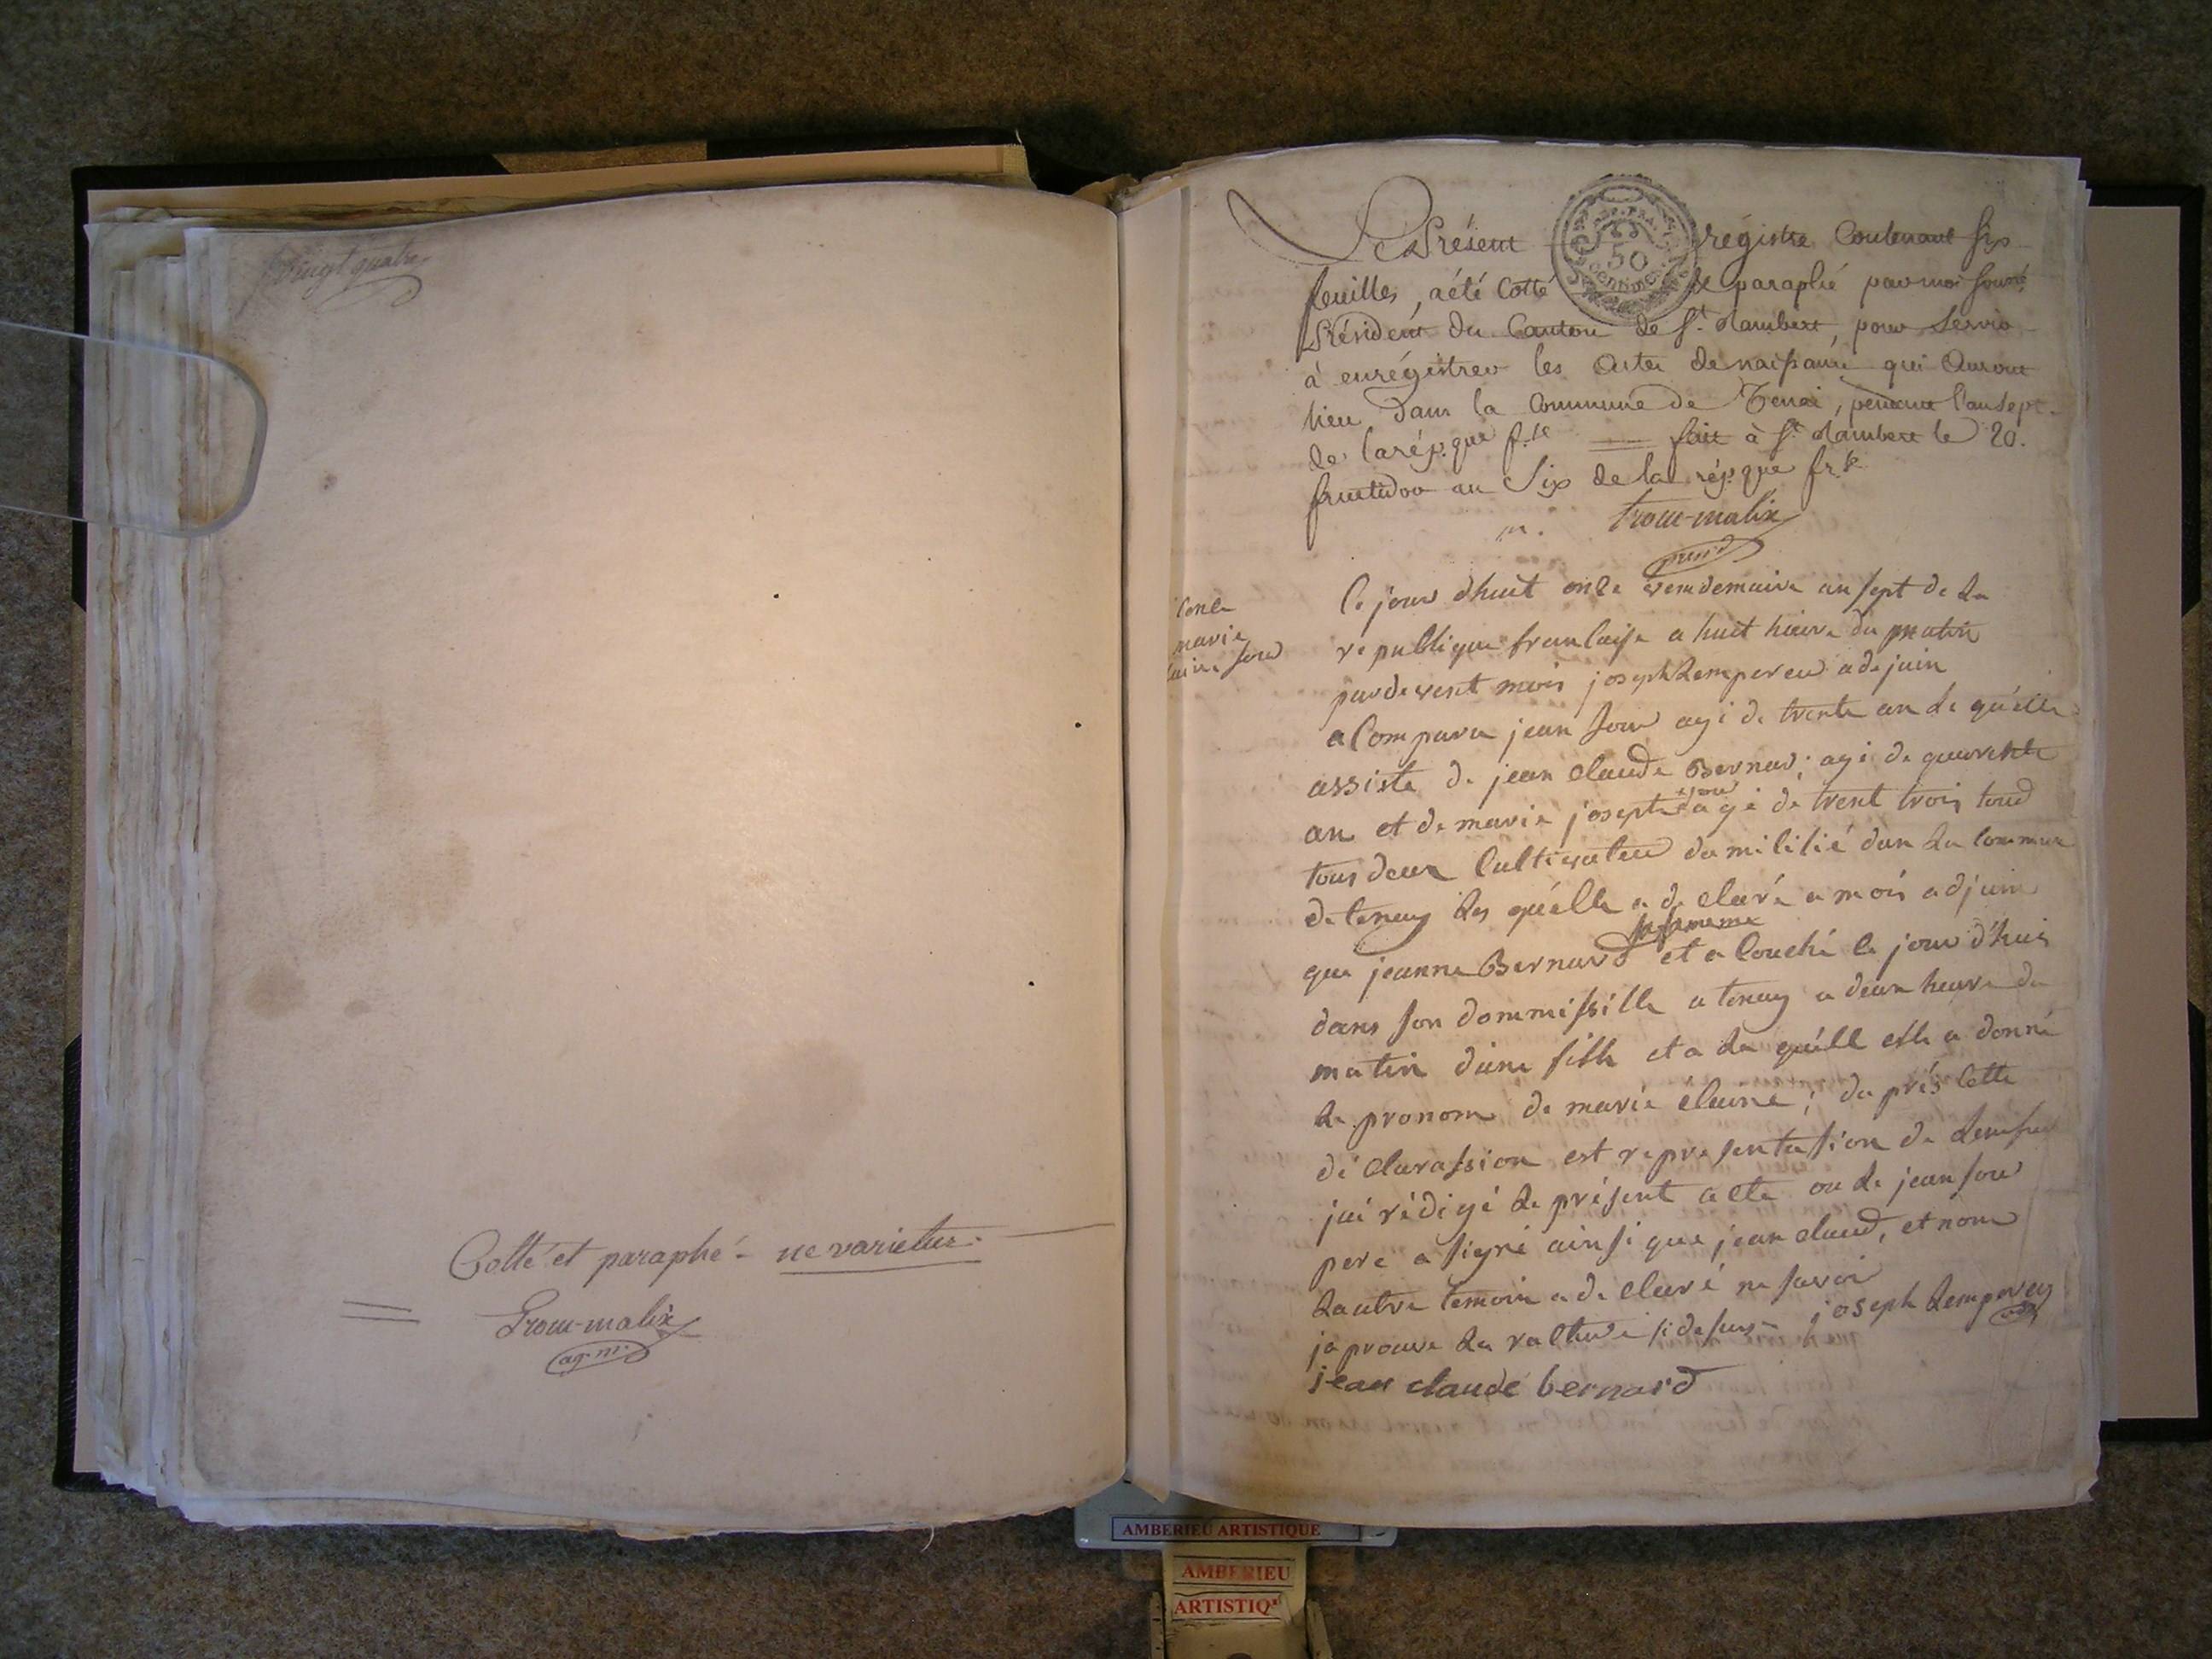 vingt quatre
Cotté et paraphé - ne varietur.
Trocu-malix
ag. m.
Le Présent régistre Contenant six
feuilles, a été Cotté & paraphé par moi soussé
Président du Canton de St. Rambert, pour servir
à enrégistrer les Actes de naissance qui Auront
lieu dans la Commune de Tenai, pendant l'an sept
de la rép.que f.se fait à St. Rambert le 20.
fructidor an Six de la rép.que fr.se
Trocu-malix
présid
marie
Ce jour dhuit onze vendemaire an sept de la
republique franCaise a huit heure du matin
pardevent mois joseph Lempereur adejuin
a Comparu jean agé de trente an le quélle
assisté de jean Claude Bernar; agé de quarente
an et de marie josepte agé de trent trois toud
tous deux Cultivateur domilisié dan La Commune
de tenay Les quélle a déClaré a mois adjuin
que jeanne Bernard sa famme et a Couché Ce jour d'huis
dans son dommissille a tenay a deux heure du
matin dune fille et a La quélle elle a donné
Le pronom de marie élaine; da prés Cette
déClarassion est representasion de Lenfan
jai rédigé Le présent aCte ou Le jean
pere a signé ainsi que jean Claud, et nom
Lautre temoin a déClaré ne savoir
japrouve La si desus joseph Lemperey
jean claude bernard
50
Centimes
AMBERIEU ARTISTIQUE
AMBERIEU
ARTISTIQ